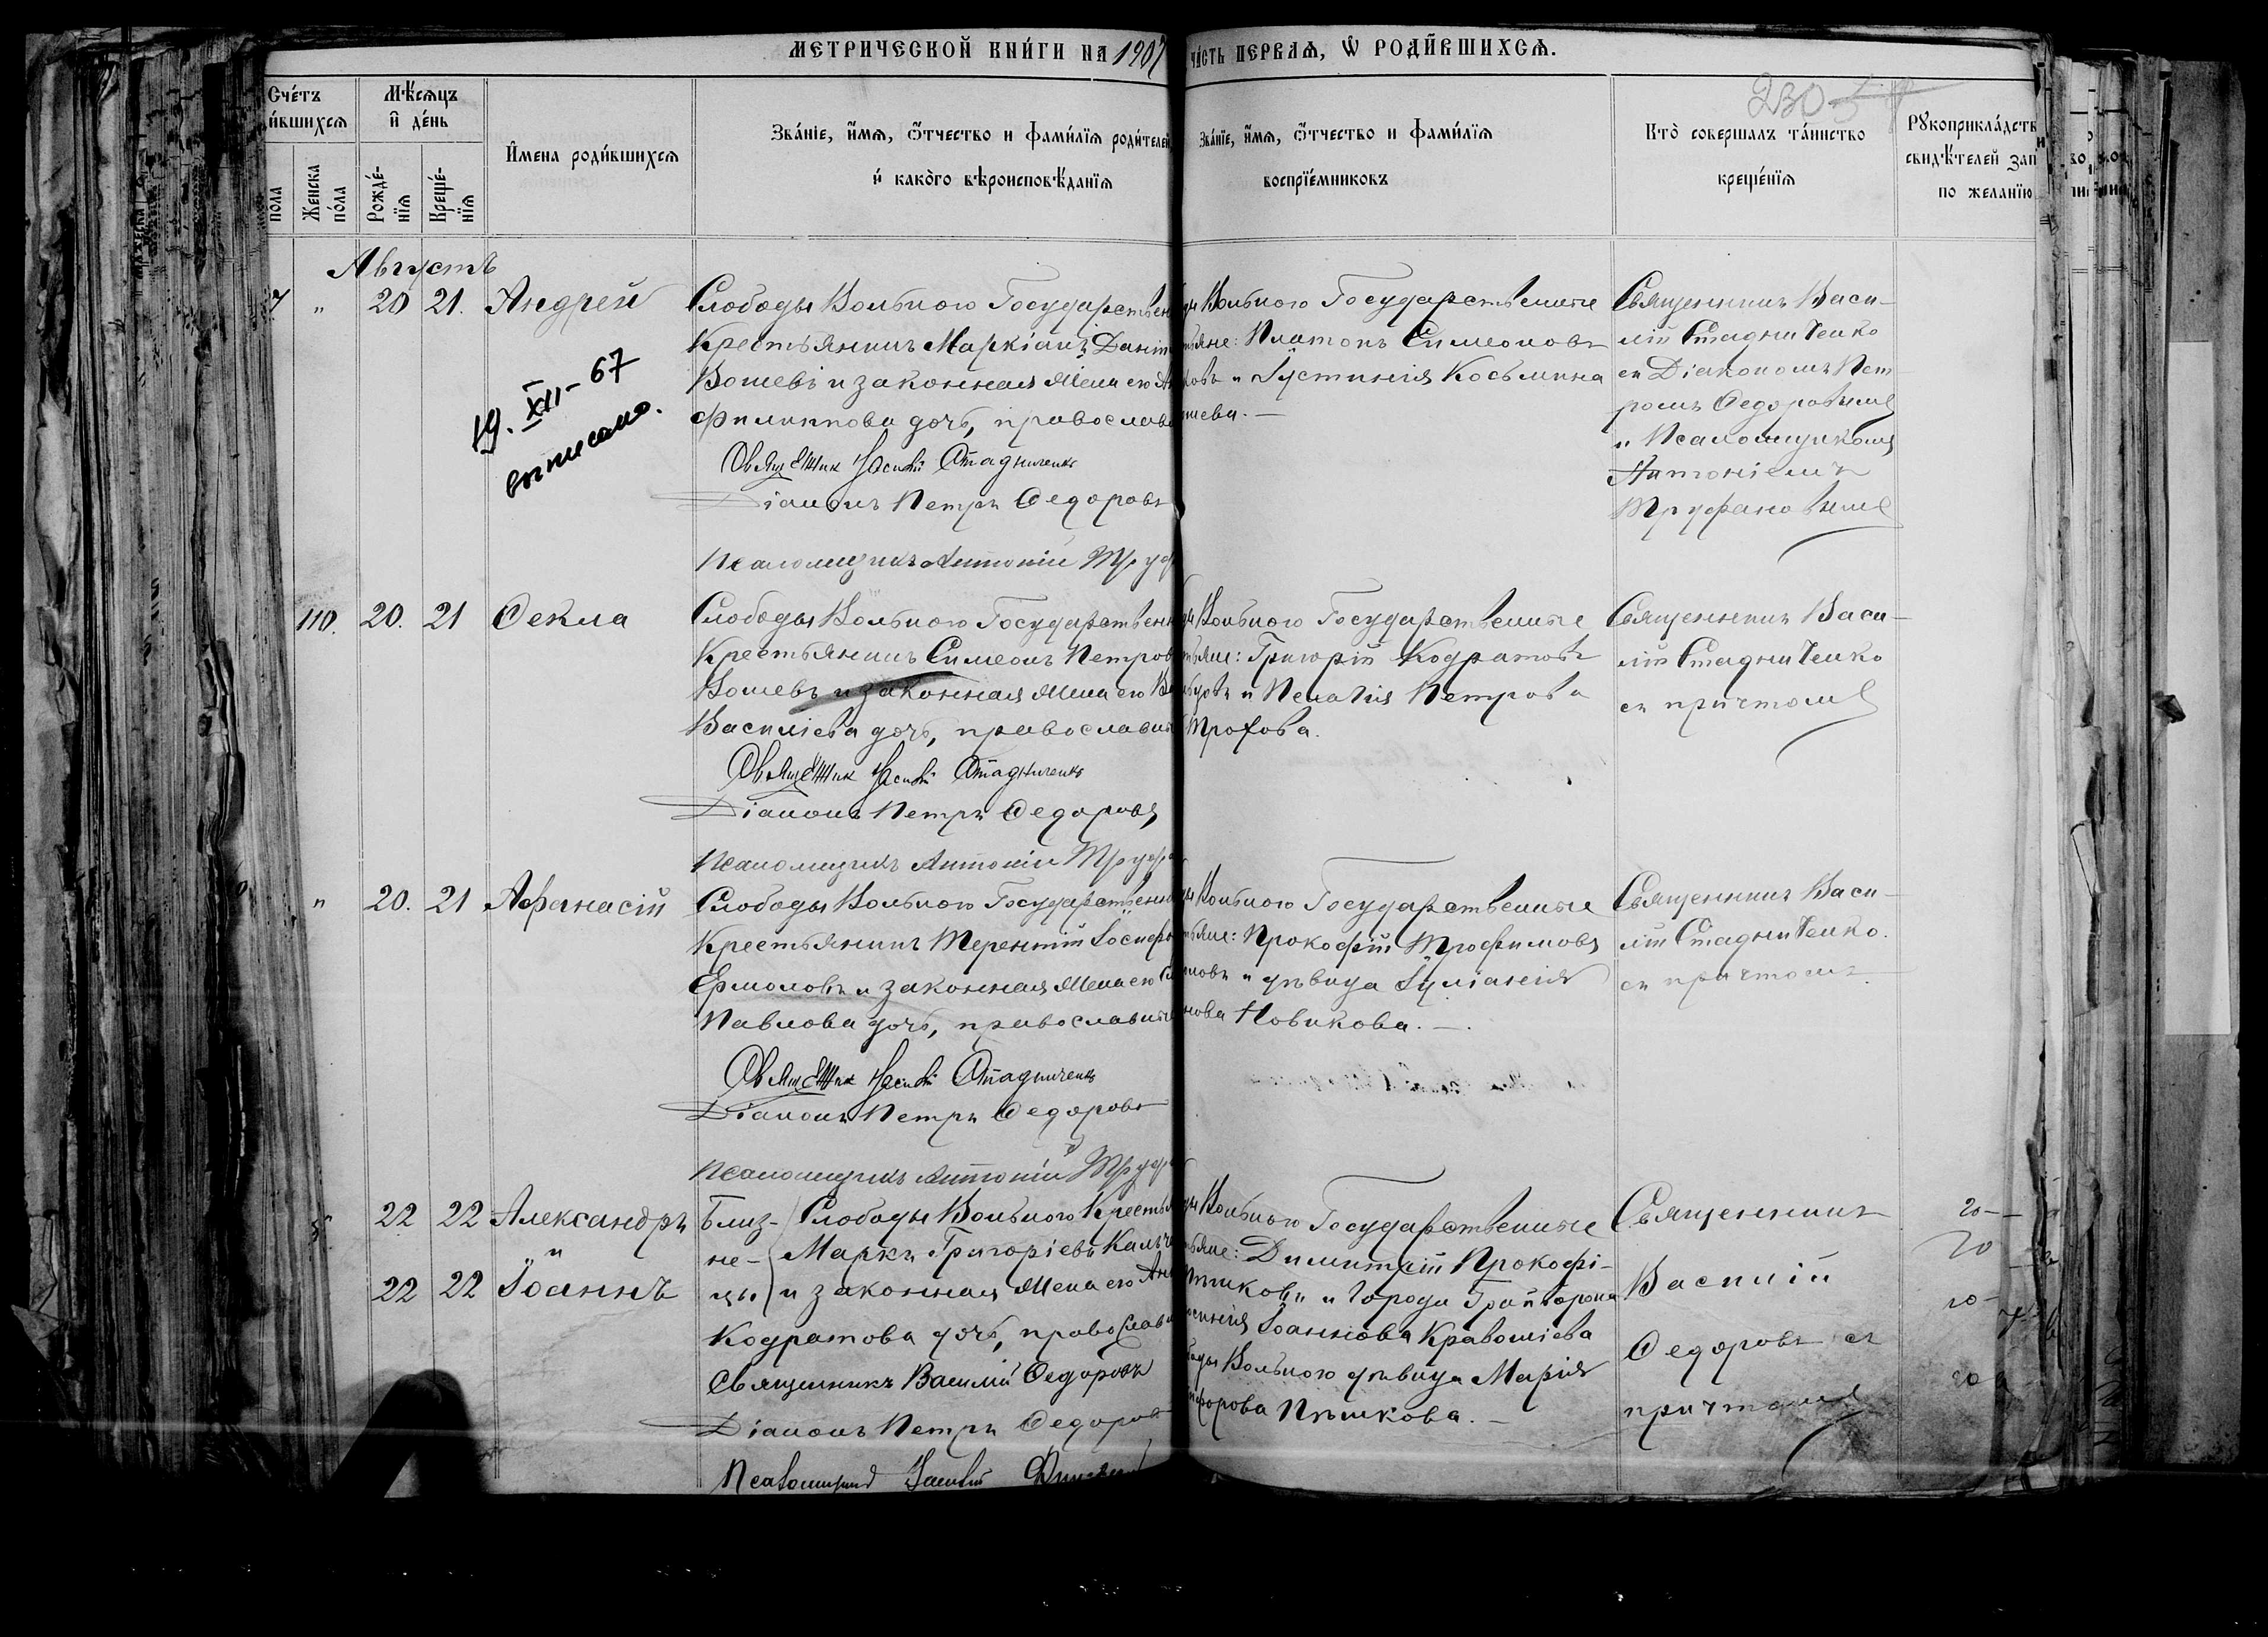 МЕТРИЧЕСКОЙ КНИ́ГИ НА 1907 ЧА́СТЬ ПЕРВАѦ, Ѡ҆ РОДИ́ВШИХСѦ.
230
Сче́тъ
и́вшихсѧ
пола
Же́нска по́ла
Мѣ́сѧцъ и҆ де́нь
Рожде́-нїѧ
Креще́-нїѧ
И҆мена роди́вшихсѧ
Зва́нїе, и҆́мѧ, о҆́тчество и фами́лїѧ роди́телей
и҆ како́го вѣроисповѣ́данїѧ
Зва́нїе, и҆́мѧ, о҆́тчество и фами́лїѧ
воспрїе́мниковъ
Кто̀ соверша́лъ та́инство
креще́нїѧ
Рꙋкоприкла́дств
свидѣ́телей зап
по желанїю
Августъ
7 " 20 21. Андрей
Слободы Вольного Государствен
Крестьянинъ Маркіанъ Дани
Вошевъ и законная жена его
Филиппова дочь, православ
Священник Василій Стадниченко
Діаконъ Петръ Ѳедоровъ
Псаломщикъ Антоній Труф
19. XII - 67
выписано.
Вольного Государственные
тьяне: Платонъ Симеоновъ
ковъ и Іустинія Косьмина
шева. —
Священникъ Васи-
лій Стадниченко
съ Діакономъ Пет
ромъ Ѳедоровымъ
и Псаломщикомъ
Антоніемъ
Труфановымъ
110. 20. 21 Ѳекла
Слободы Вольного Государствен
Крестьянинъ Симеонъ Петров
Вошевъ и законная жена его
Василіева дочь, православн
Священник Василій Стадниченко
Діаконъ Петръ Ѳедоровъ
Псаломщикъ Антоній Труфа
Вольного Государственные
тьяне: Григорій Кодратовъ
и Пелагія Петрова
Трохова.
Священникъ Васи-
лій Стадниченко
съ причтомъ
" 20. 21 Аѳанасій
Слободы Вольного Государственн
Крестьянинъ Терентій Іосифо
Ермоловъ и законная жена его
Павлова дочь, православны
Священник Василій Стадниченко
Діаконъ Петръ Ѳедоровъ
Псаломщикъ Антоній Труф
Вольного Государственные
тьяне: Прокофій Трофимовъ
мовъ и дѣвица Іуліанія
нова Новикова. —
Священникъ Васи-
лій Стадниченко.
съ причтомъ
22 22 Александръ
"
22 22 Іоаннъ
Близ- Слободы Вольного Кресть
не- Маркъ Григоріевъ
цы и законная жена его
Кодратова дочь, православ
Священникъ Василій Ѳедоровъ
Діаконъ Петръ Ѳедоров
Псаломщикъ
Вольного Государственные
тьяне: Димитрій Прокофі-
и города Грайворона
Іоаннова
Вольного дѣвица Марія
форова Пѣшкова. —
Священникъ
Василій
Ѳедоровъ съ
причтомъ
20